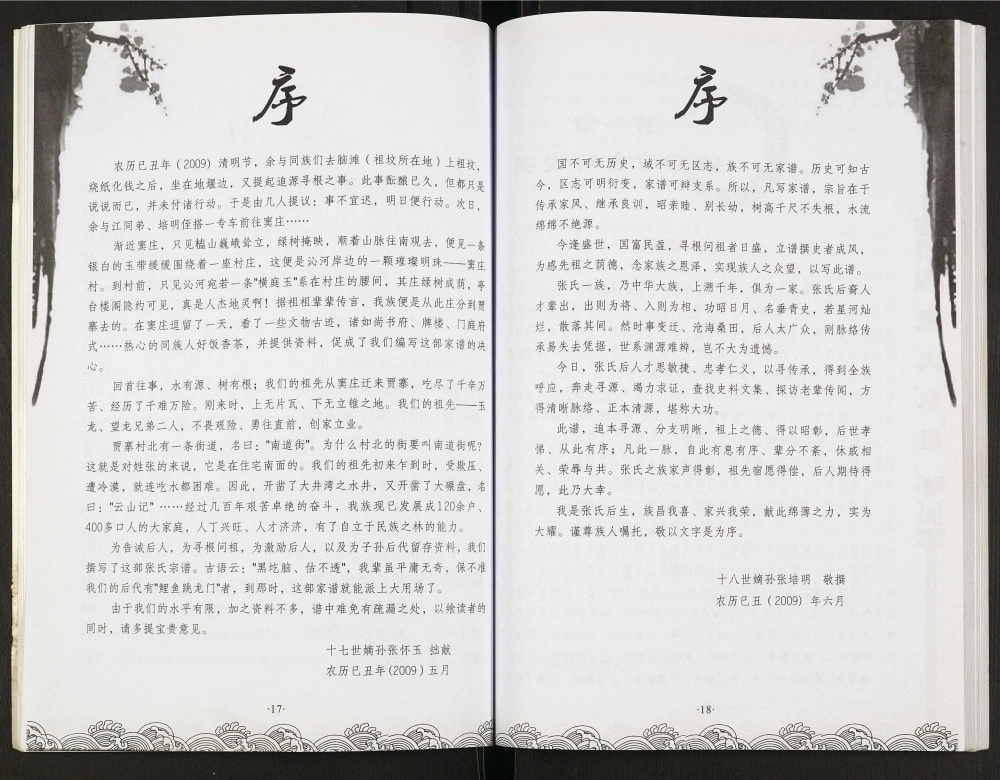 序
农历已丑年（2009）清明节，余与同族们去脑滩（祖坟所在地）上祖坟，
烧纸化钱之后，坐在地堰边，又提起追源寻根之事。此事酝酿已久，但都只是
说说而已，并未付诸行动。于是由几人提议：事不宜迟，明日便行动。次日，
余与江同弟、培明侄搭一专车前往窦庄……
渐近窦庄，只见榼山巍峨耸立，绿树掩映，顺着山脉往南观去，便见一条
银白的玉带缓缓围绕着一座村庄，这便是沁河岸边的一颗璀璨明珠——窦庄
村。到村前，只见沁河宛若一条"横庭玉"系在村庄的腰间，其庄绿树成荫，亭
台楼阁隐约可见，真是人杰地灵啊！据祖祖辈辈传言，我族便是从此庄分到贾
寨去的。在窦庄逗留了一天，看了一些文物古迹，诸如尚书府、牌楼、门庭府
式……热心的同族人好饭香茶，并提供资料，促成了我们编写这部家谱的决
心。
回首往事，水有源、树有根；我们的祖先从窦庄迁来贾寨，吃尽了千辛万
苦、经历了千难万险。刚来时，上无片瓦、下无立锥之地。我们的祖先——玉
龙、望龙兄弟二人，不畏艰险、勇往直前，创家立业。
贾寨村北有一条街道，名曰："南道街"。为什么村北的街要叫南道街呢？
这就是对姓张的来说，它是在住宅南面的。我们的祖先初来乍到时，受欺压、
遭冷漠，就连吃水都困难。因此，开凿了大井湾之水井，又开凿了大碾盘，名
曰："云山记"……经过几百年艰苦卓绝的奋斗，我族现已发展成120余户、
400多口人的大家庭，人丁兴旺、人才济济，有了自立于民族之林的能力。
为告诫后人，为寻根问祖，为激励后人，以及为子孙后代留存资料，我们
撰写了这部张氏宗谱。古语云："黑圪脑、估不透"，我辈虽平庸无奇，保不准
我们的后代有"鲤鱼跳龙门"者，到那时，这部家谱就能派上大用场了。
由于我们的水平有限，加之资料不多，谱中难免有疏漏之处，以飨读者的
同时，请多提宝贵意见。
十七世嫡孙张怀玉 拙献
农历已丑年（2009）五月
·17·
序
国不可无历史，域不可无区志，族不可无家谱。历史可知古
今，区志可明衍变，家谱可辩支系。所以，凡写家谱，宗旨在于
传承家风、继承良训，昭亲睦、别长幼，树高千尺不失根，水流
绵绵不绝源。
今逢盛世，国富民盈，寻根问祖者日盛，立谱撰史者成风，
为感先祖之荫德，念家族之恩泽，实现族人之众望，以写此谱。
张氏一族，乃中华大族，上溯千年，俱为一家。张氏后裔人
才辈出，出则为将、入则为相，功昭日月、名垂青史，若星河灿
烂，散落其间。然时事变迁、沧海桑田，后人太广众，则脉络传
承易失去凭据，世系渊源难辨，岂不大为遗憾。
今日，张氏后人才思敏捷、忠孝仁义，以寻传承，得到全族
呼应，奔走寻源、竭力求证，查找史料文集、探访老辈传闻，方
得清晰脉络、正本清源，堪称大功。
此谱，追本寻源、分支明晰，祖上之德、得以昭彰，后世孝
悌、从此有序；凡此一脉，自此有息有序、辈分不紊，休戚相
关、荣辱与共。张氏之族家声得彰，祖先宿愿得偿，后人期待得
愿，此乃大幸。
我是张氏后生，族昌我喜、家兴我荣，献此绵薄之力，实为
大耀。谨尊族人嘱托，敬以文字是为序。
十八世嫡孙张培明 敬撰
农历已丑（2009）年六月
·18·